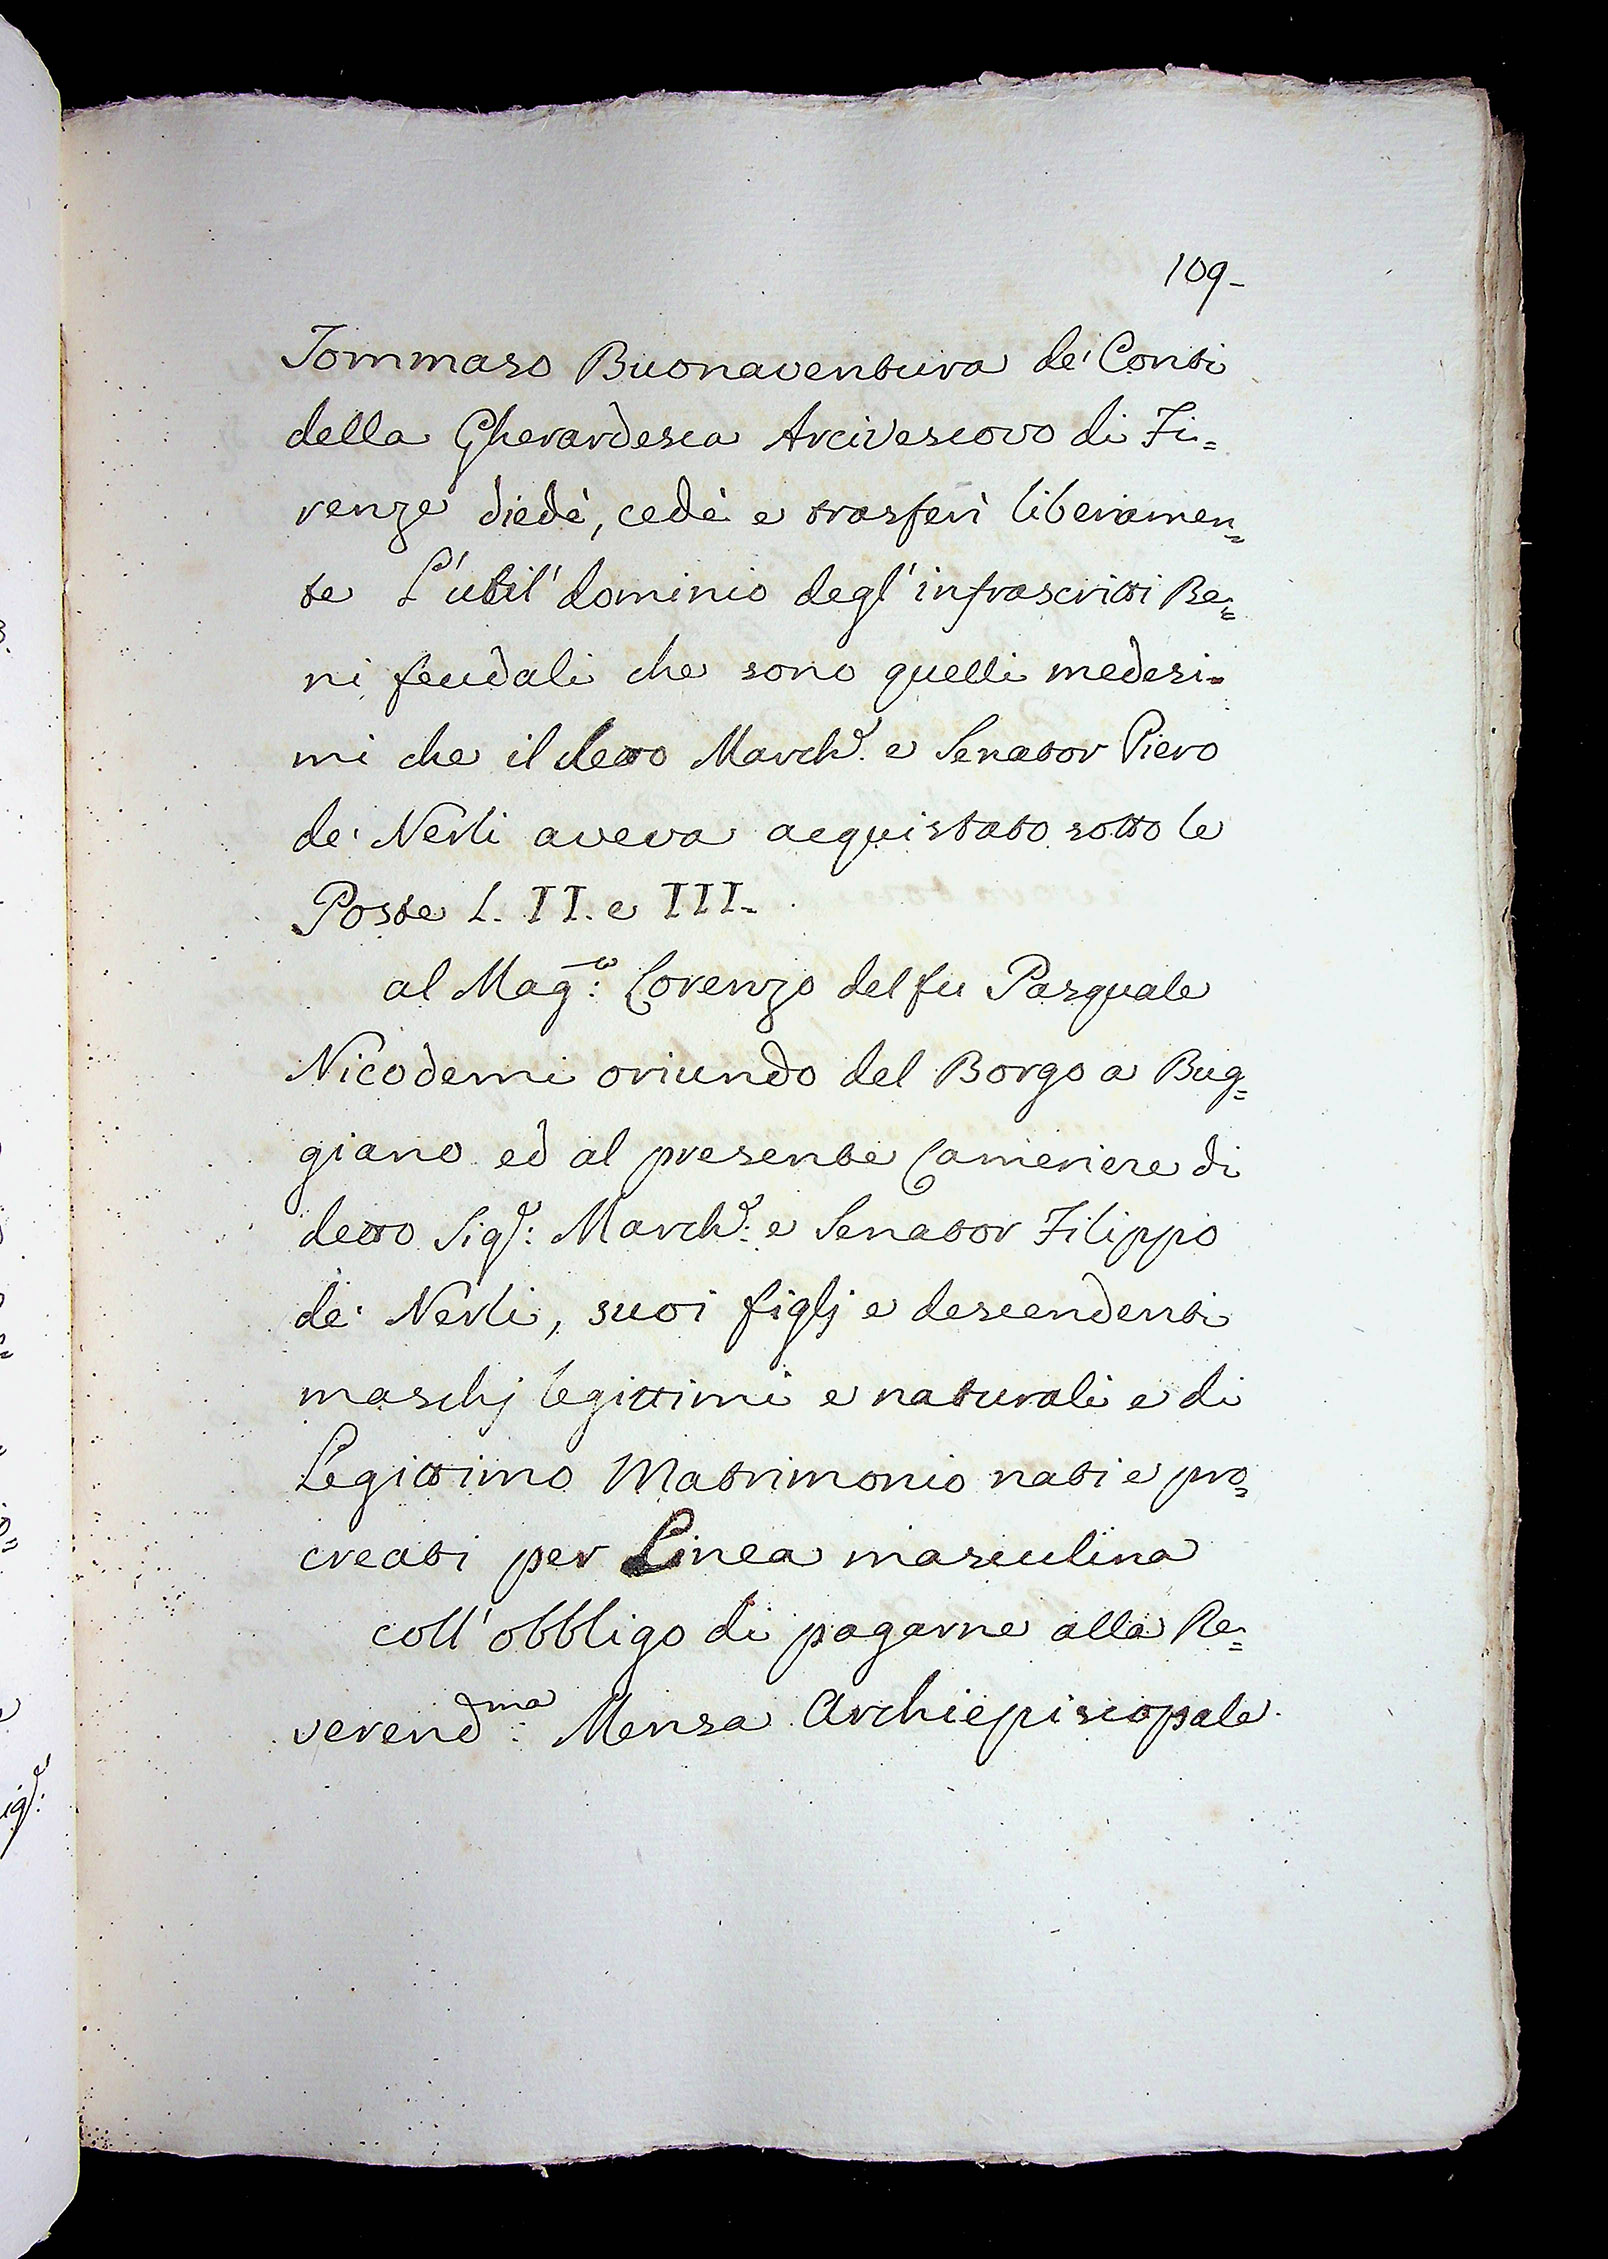 109-
Tommaso Buonaventura de' Conti
della Gherardesca Arcivescovo di Fi=
renze diedè, cedè e trasferì liberamen=
te L'util' dominio degl' infrascritti Be=
ni feudali che sono quelli medesi=
mi che il detto March.e e Senator Piero
de' Nerli aveva acquistato sotto le
Poste L. II. e III.
al Mag.co: Lorenzo del fu Pasquale
Nicodemi oriundo del Borgo a Bug=
giano ed al presente Cameriere di
detto Sig.e: March.e: e Senator Filippo
de' Nerli, suoi figlj e descendenti
maschj legittimi e naturali e di
Legittimo Matrimonio nati e pro=
creati per Linea masculina
coll' obbligo di pagarne alla Re=
verend.ma: Mensa Archiepiscopale